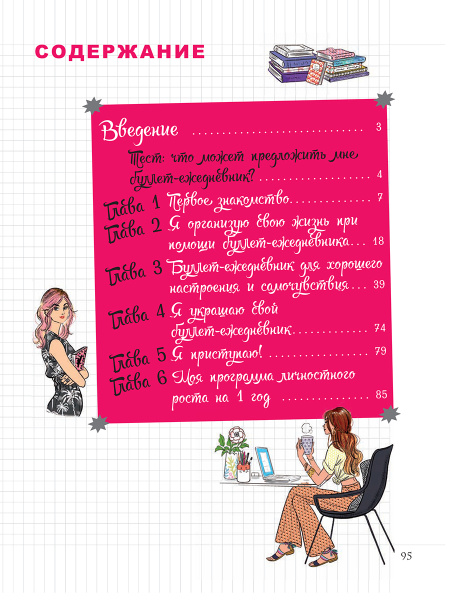 СОДЕРЖАНИЕ
Введение ............................ 3
Тест: что может предложить мне
буллет-ежедневник? .................. 4
Глава 1 Первое знакомство.............. 7
Глава 2 Я организую свою жизнь при
помощи буллет-ежедневника... 18
Глава 3 Буллет-ежедневник для хорошего
настроения и самочувствия... 39
Глава 4 Я украшаю свой
буллет-ежедневник............. 74
Глава 5 Я приступаю! ................. 79
Глава 6 Моя программа личностного
роста на 1 год .............. 85
95